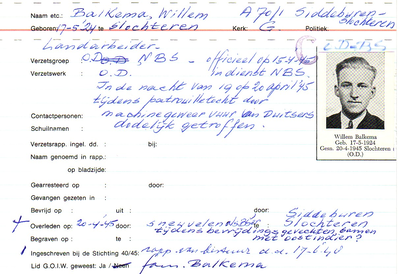 Naam etc.: Balkema, Willem A 70/1 Siddeburen-
Slochteren
Geboren: 17-5-'24 te Slochteren Kerk: G. Politiek:
Landarbeider.
Verzetsgroep O.D. NBS - officieel op 15-4-45
Verzetswerk : O.D. in dienst NBS.
In de nacht van 19 op 20 april '45
tijdens patrouilletocht door
machinegeweervuur van Duitsers
Contactpersonen:
dodelijk getroffen.
Schuilnamen :
Willem Balkema
Geb. 17-5-1924
Gesn. 20-4-1945 Slochteren
(O.D.)
Verzetsrapp. ingel. dd. : bij:
Naam genoemd in rapp.:
op bladzijde:
Gearresteerd op : door:
Gevangen gezeten in :
Bevrijd op : uit : door: Siddeburen
Overleden op : 20-4-'45 door: sneuvelen te Slochteren
tijdens bevrijdingsgevechten, samen
Begraven op : te: met
Ingeschreven bij de Stichting 40/45: rapp. van bestuur d.d. 17-6-'48
Lid G.O.I.W. geweest: Ja / Neen fam. Balkema